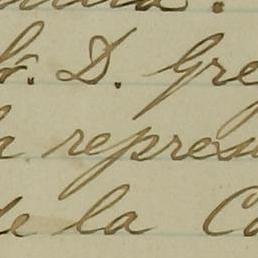 D. Gre
la repres
de la Co